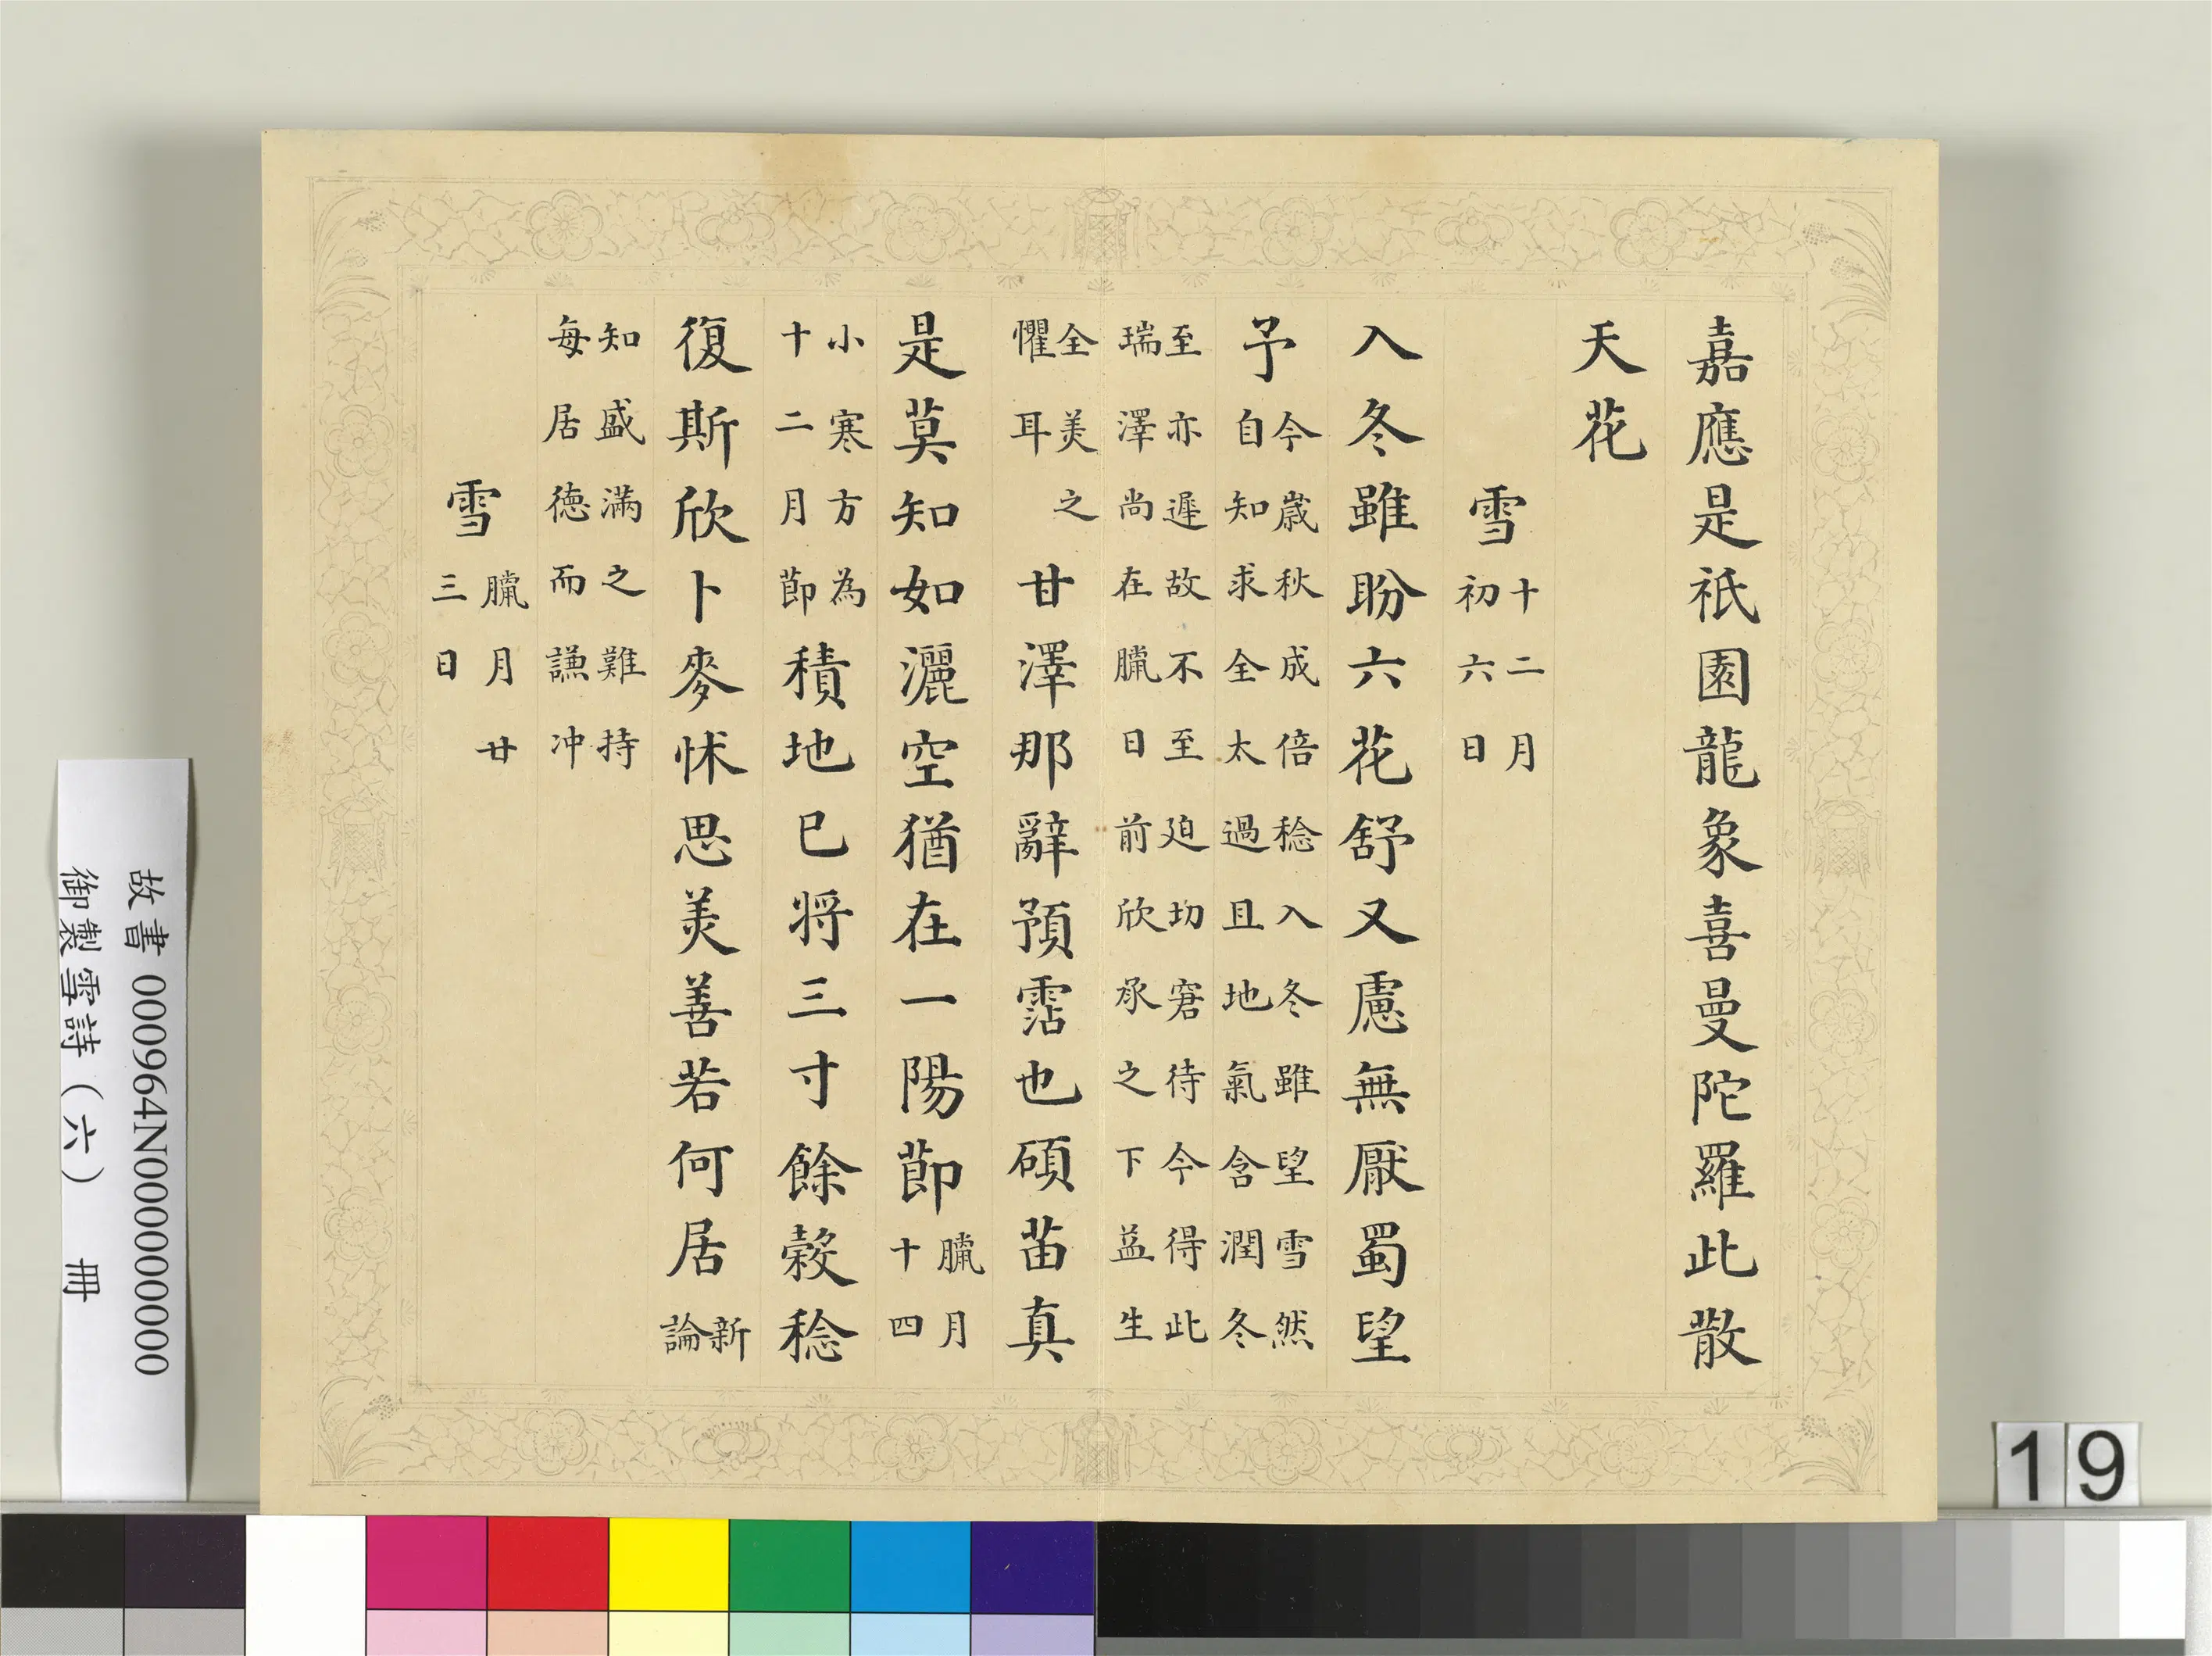 嘉應是祇園龍象喜曼陀羅此散
天花
雪
十二月
初六日
入冬雖盼六花舒又慮無厭蜀望
予
今歲秋成倍稔入冬雖望雪然
自知求全太過且地氣含潤冬
至亦遲故不至廹切窘待今得此
瑞澤尚在臘日前欣承之下益生
全美之
懼耳
甘澤那辭預霑也碩苗真
是莫知如灑空猶在一陽節
臘月
十四
小寒方為
十二月節
積地已將三寸餘穀稔
復斯欣卜麥怵思美善若何居
新
論
知盛滿之難持
每居德而謙冲
雪
臘月廿
三日
故書 000964N000000000
御製雪詩（六） 冊
19